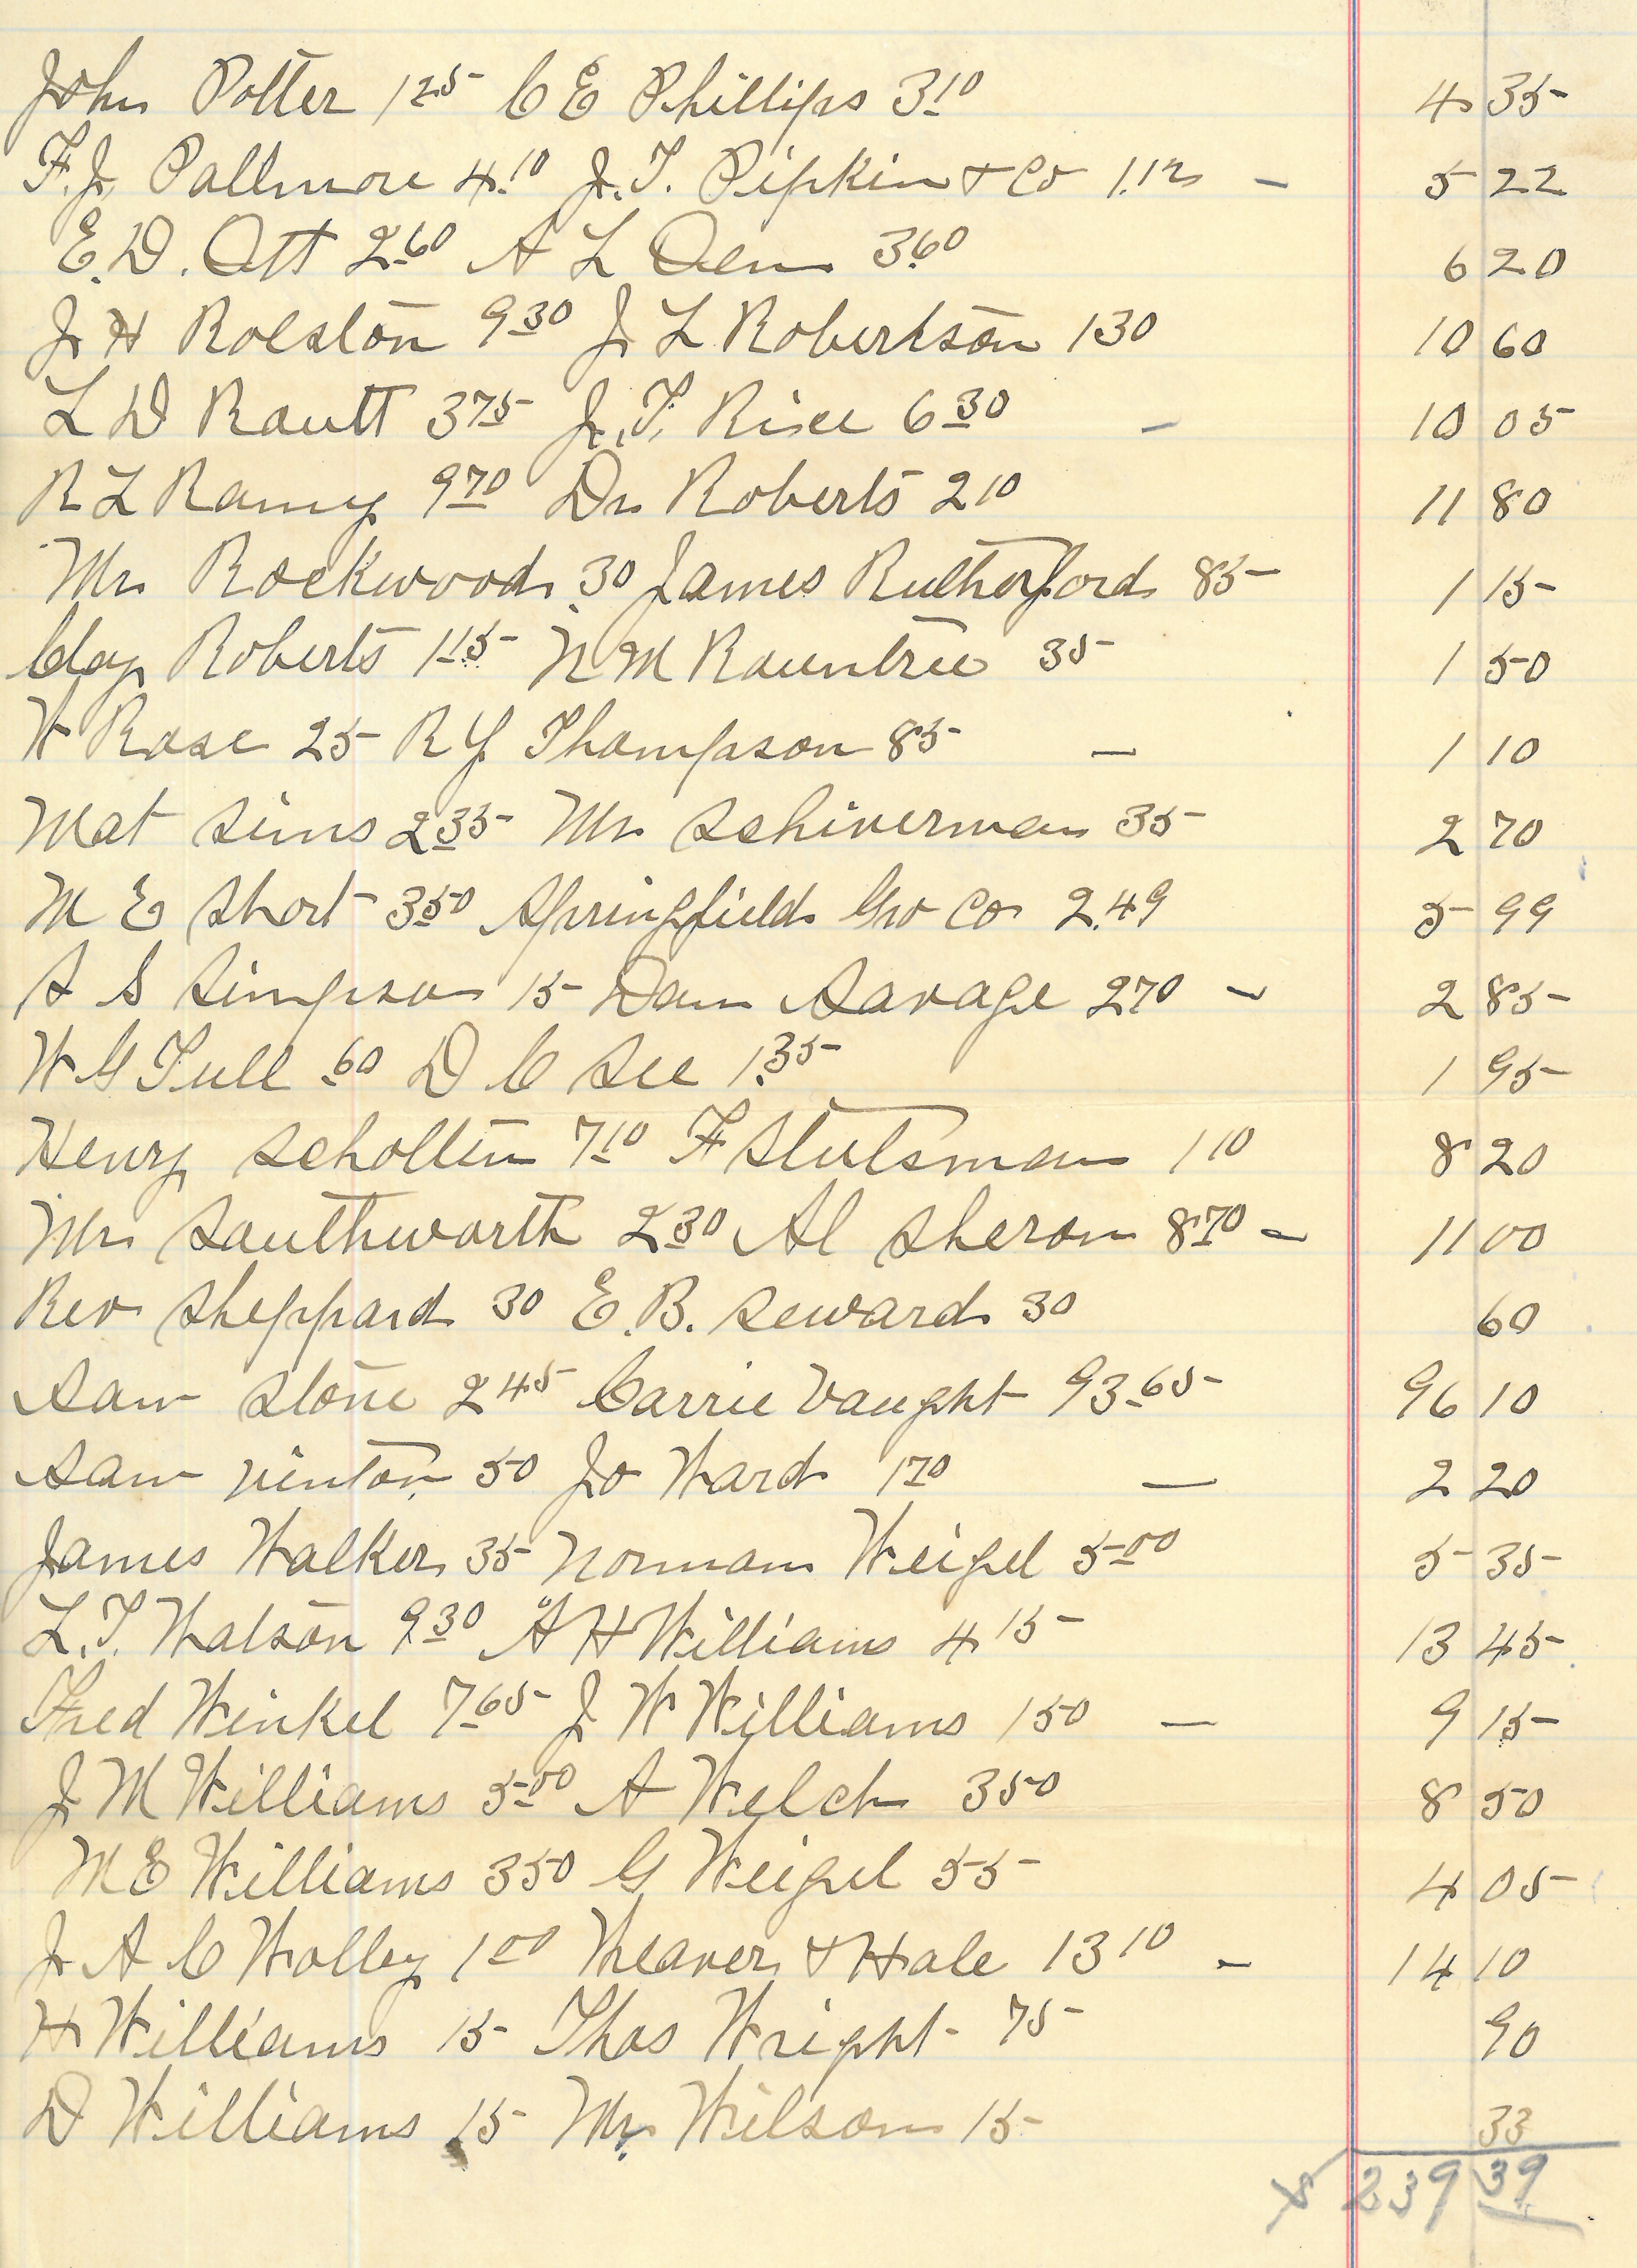 John Potter 1 25 C E Phillips 3 10 4 35
F. J. Pallmore 4.10 J. T. Pipkin & Co 1.12 - 5 22
E. D. Ott 2 60 A L Oen 3.60 6 20
J H Rolston 9 30 J L Robertson 1 30 10 60
L D Routt 3 75 J. T. Rice 6 30 - 10 05
R L Ramy 9 70 Dr Roberts 2 10 11 80
Mr Rockwood .30 James Rutherford 85 1 15
Clay Roberts 1 15 N M Rountree 35 1 50
W Rose 25 R Y Thompson 85 - 1 10
Mat Sims 2 35 Mr Schiverman 35 2 70
M E Short 3 50 Springfield Gro Co 2.49 5 99
S S Simpson 15 Dam Savage 2 70 - 2 85
W G Tull .60 D C See 1.35 1 95
Henry Scholten 7 10 F Stutsman 1 10 8 20
Mr Southworth 2 30 Al Sheron 8 70 - 11 00
Rev Sheppard 30 E. B. Seward 30 60
Sam Stone 2 45 Carrie Vaught 93 65 96 10
Sam Vinton 50 Jo Ward 1 70 - 2 20
James Walker 35 Norman Weigel 5 00 5 35
L. T. Watson 9 30 A H Williams 4 15 13 45
Fred Winkel 7 65 J W Williams 1 50 - 9 15
J M Williams 5 00 A Welch 3 50 8 50
M E Williams 3 50 G Weigel 55 4 05
J A C Wolley 1 00 Weaver & Hale 13 10 - 14 10
H Williams 15 Thos Wright 75 90
D Williams 15 Mr Wilson 15 33
239 39